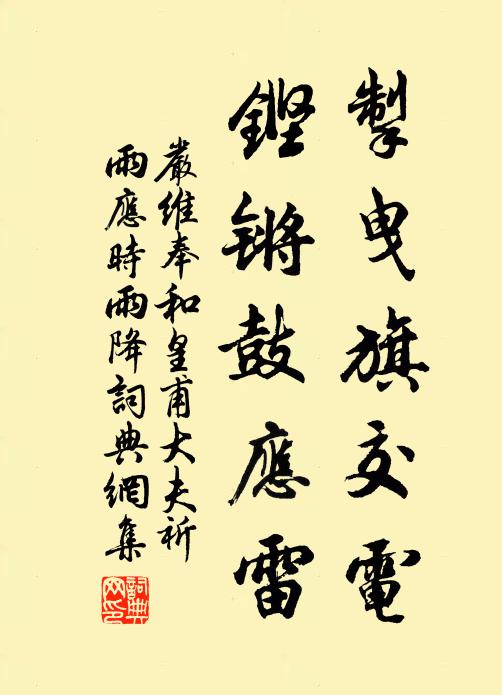 掣曳旗交電
鏗鏘鼓應雷
嚴維奉和皇甫大夫祈
雨應時雨降詞典網集